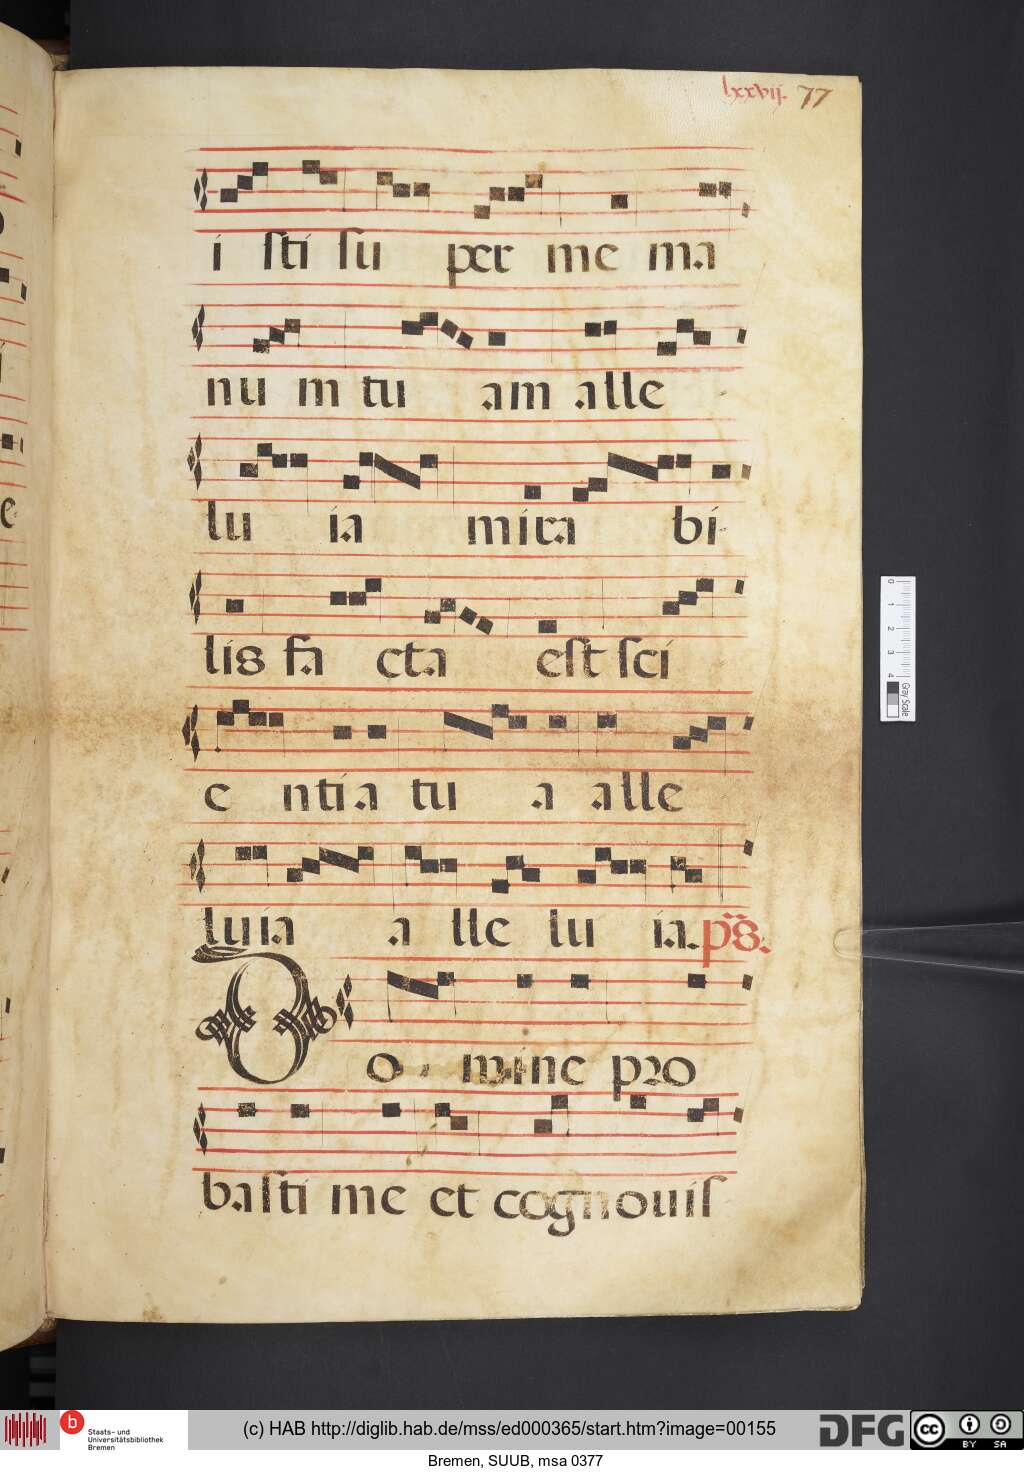 lxxvij. 77
i sti su per me ma
nu m tu am alle
lu ia mira bi
lis fa cta est sci
e ntia tu a alle
luia a lle lu ia. ps.
Do mine pro
basti me et cognouis
e
0 1 2 3 4
Gray Scale
b Staats- und Universitätsbibliothek Bremen
(c) HAB http://diglib.hab.de/mss/ed000365/start.htm?image=00155
DFG
cc BY SA
Bremen, SUUB, msa 0377